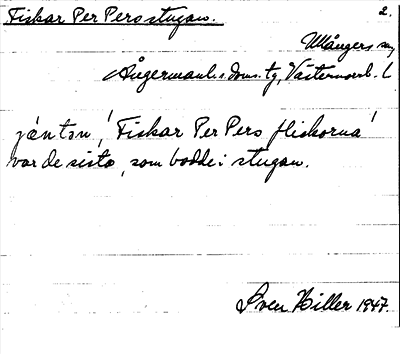 Fiskar Per Persstugan. 2.
Ullångers sn,
Ångermanl:s doms. tg, Västernorrl. L
jäntɘn, 'Fiskar Per Pers flickorna'
var de sista, som bodde i stugan.
Sven Hiller 1947.